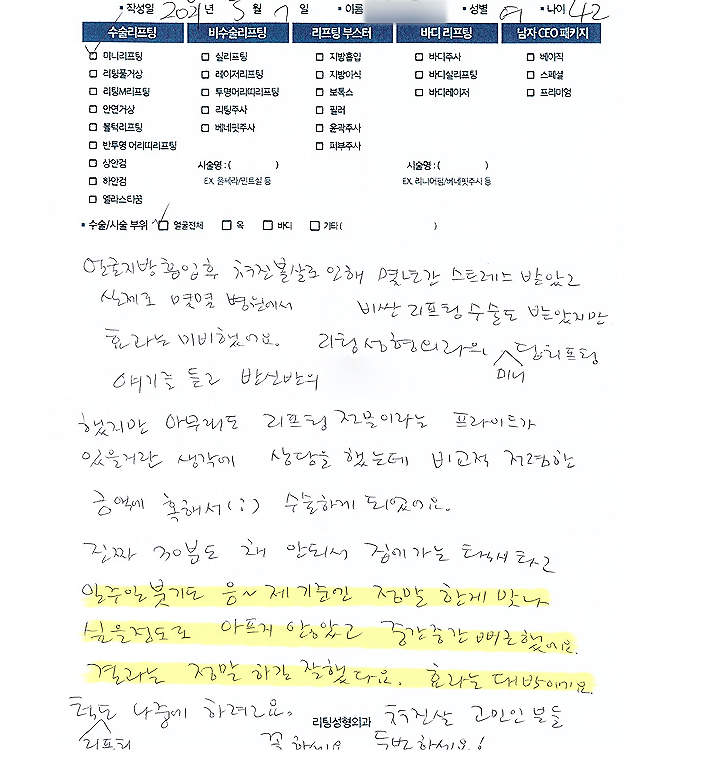 작성일 2021년 5월 7일 이름 성별 여 나이 42
수술리프팅 비수술리프팅 리프팅 부스터 바디 리프팅 남자 CEO 패키지
미니리프팅 실리프팅 지방흡입 바디주사 베이직
리팅풀거상 레이저리프팅 지방이식 바디실리프팅 스페셜
리팅M리프팅 투명머리띠리프팅 보톡스 바디레이저 프리미엄
안면거상 리팅주사 필러
볼턱리프팅 베네핏주사 윤곽주사
반투명 머리띠리프팅 피부주사
상안검 시술명 : ( ) 시술명 : ( )
하안검 EX. 울쎄라/민트실 등 EX. 리니어펌/베네핏주사 등
엘라스티꿈
수술/시술 부위 얼굴전체 목 바디 기타( )
얼굴지방흡입후 쳐진볼살로 인해 몇년간 스트레스 받았고
실제로 몇몇 병원에서 비싼 리프팅 수술도 받았지만
효과는 미비했어요. 리팅성형외과의 미니 리프팅
얘기를 듣고 반신반의
했지만 아무래도 리프팅 전문이라는 프라이드가
있을거란 생각에 상담을 했는데 비교적 저렴한
금액에 혹해서(;) 수술하게 되었어요.
진짜 30분도 채 안되서 집에가는 택시 타고
일주일붓기도 음~ 제 기준엔 정말 한게 맞나
싶을정도로 아프지 않았고 중간중간 뻐근했어요.
결과는 정말 하길 잘했다요. 효과는 대박이에요.
턱도 나중에 하려고요. 리팅성형외과 쳐진살 고민인 분들
리프팅 꼭 하세요 두번하세요!